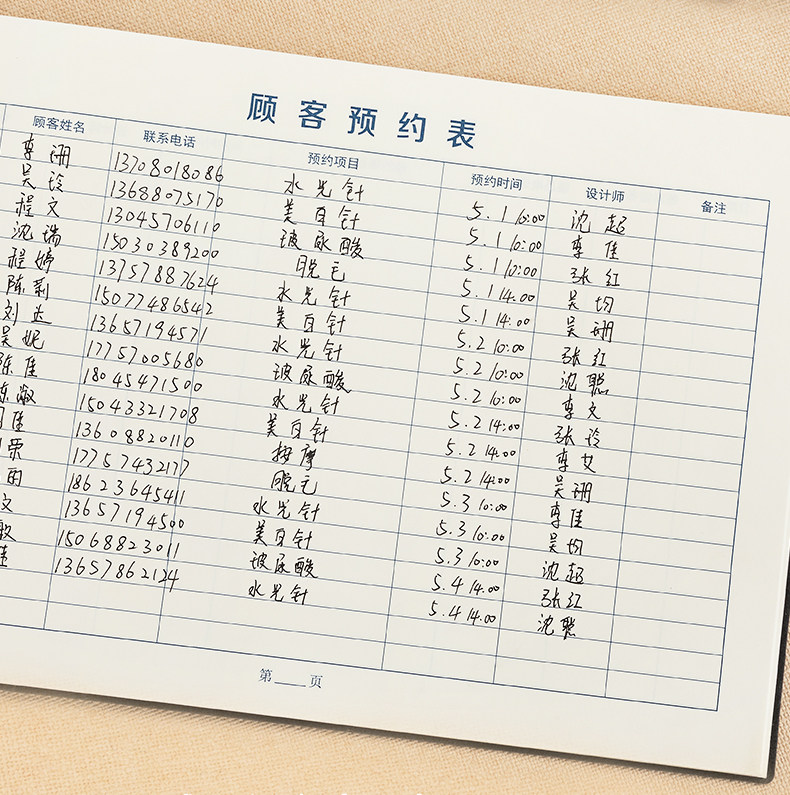 顾客预约表
顾客姓名 联系电话 预约项目 预约时间 设计师 备注
李珊 13708018086 水光针 5.1 10:00 沈超
吴玲 13688075170 美白针 5.1 10:00 李佳
程文 13045706110 玻尿酸 5.1 10:00 张红
沈瑞 15030389200 脱毛 5.1 14:00 吴均
程婷 13757887624 水光针 5.1 14:00 吴珊
陈莉 15077486542 美白针 5.2 10:00 张红
刘达 13657194571 水光针 5.2 10:00 沈聪
吴妮 17757005680 玻尿酸 5.2 10:00 李文
陈佳 18045471500 水光针 5.2 14:00 张玲
陈敏 15043321708 美白针 5.2 14:00 李文
佳 13608820110 按摩 5.2 14:00 吴珊
荣 17757432177 脱毛 5.3 10:00 李佳
雨 18623645411 水光针 5.3 10:00 吴均
文 13657194500 美白针 5.3 10:00 沈超
敏 15068823011 玻尿酸 5.4 14:00 张红
13657862124 水光针 5.4 14:00 沈聪
第____页